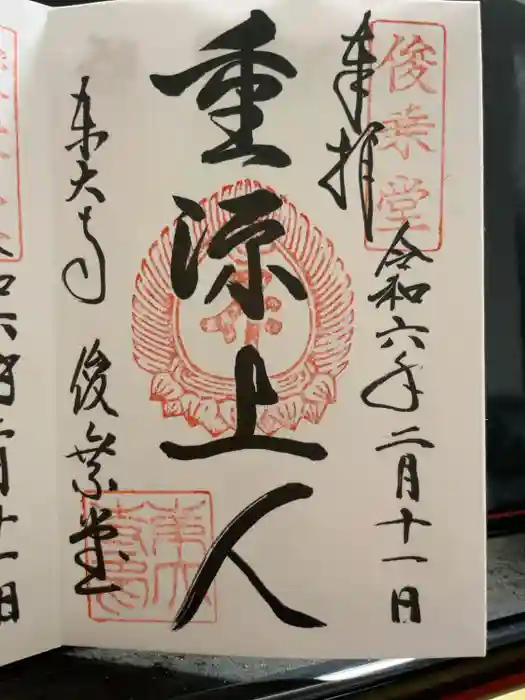 俊乗堂
奉拝
令和六年二月十一日
重源上人
東大寺
俊乗堂
和六年二月十一日